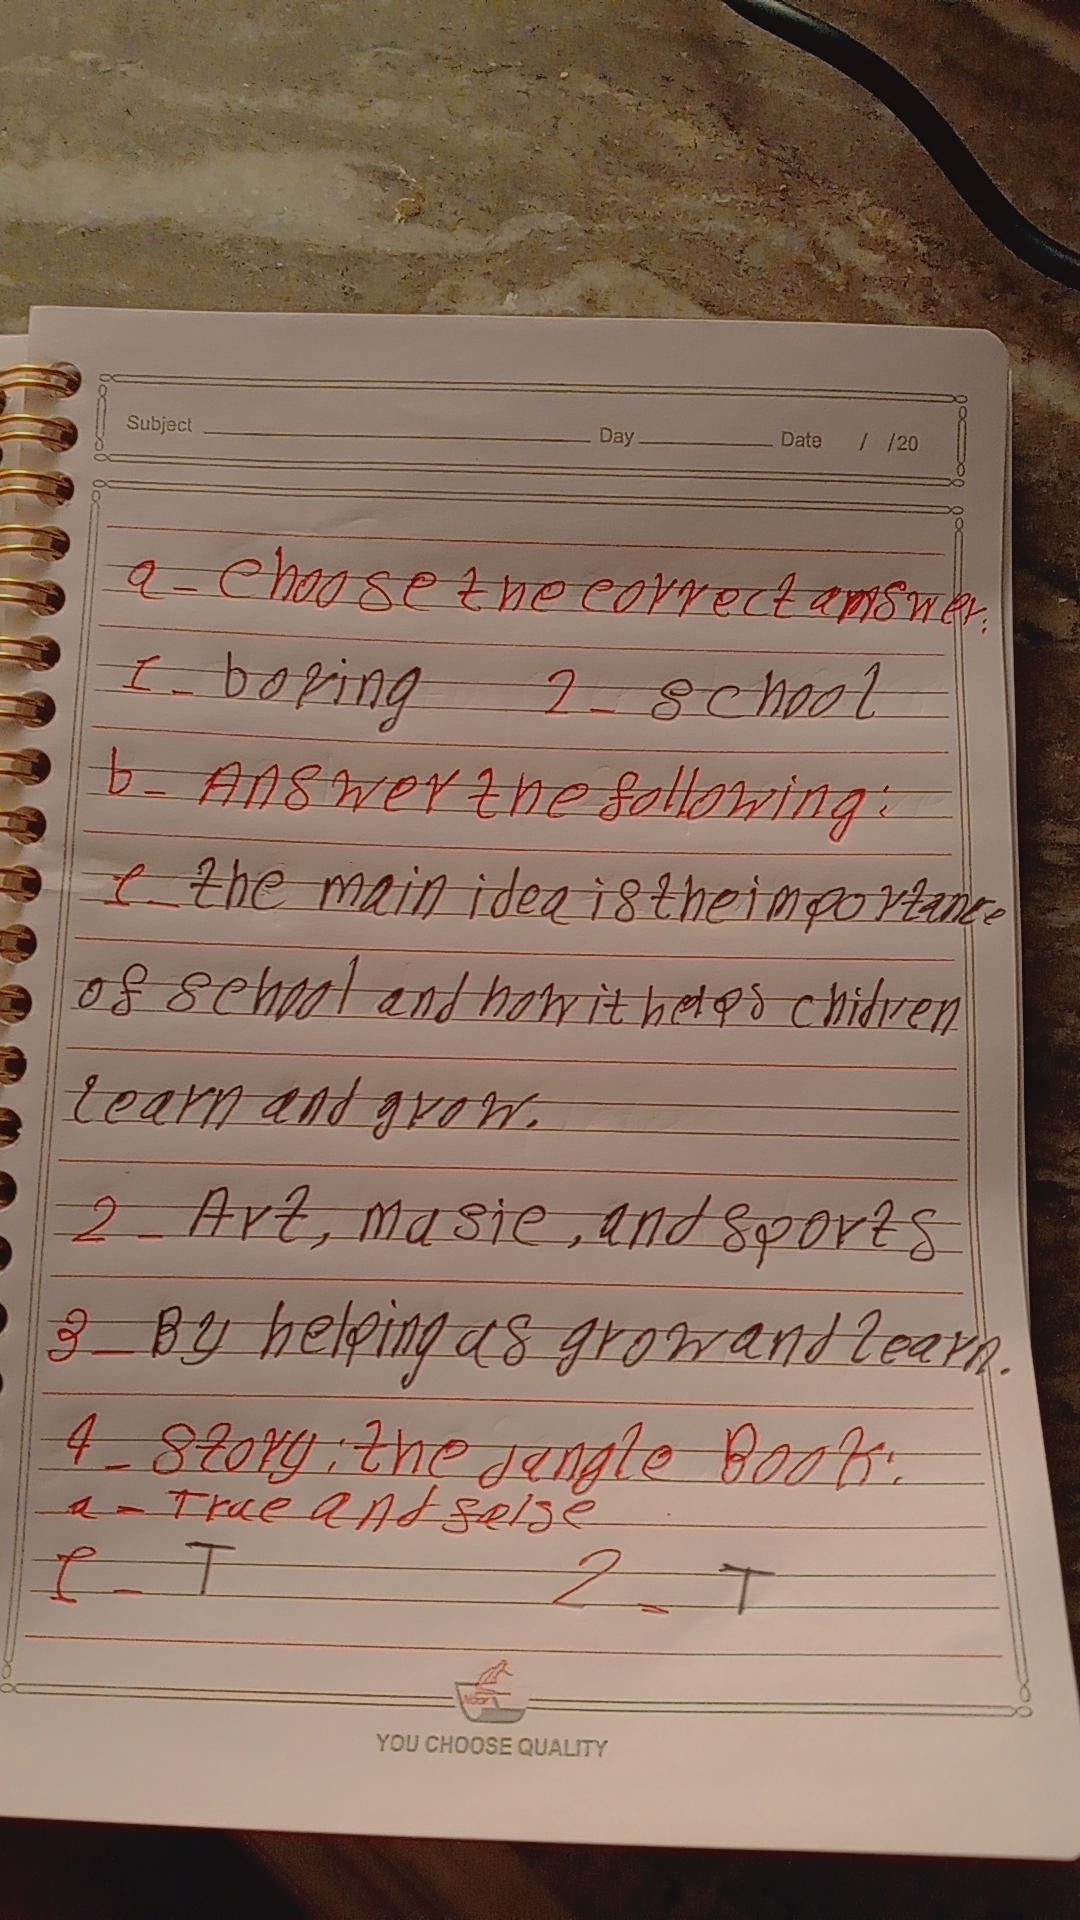 Subject Day Date / /20
a- choose the correct amswer:
1- boring 2- school
b- Answer the following:
1- the main idea is the importance
of school and how it helps chidren
learn and grow.
2- Art, masic, and sports
3- By helping as grow and learn.
4- Story: the jangle Book:
a- Trae and felse
1- T 2- T
Noor
YOU CHOOSE QUALITY